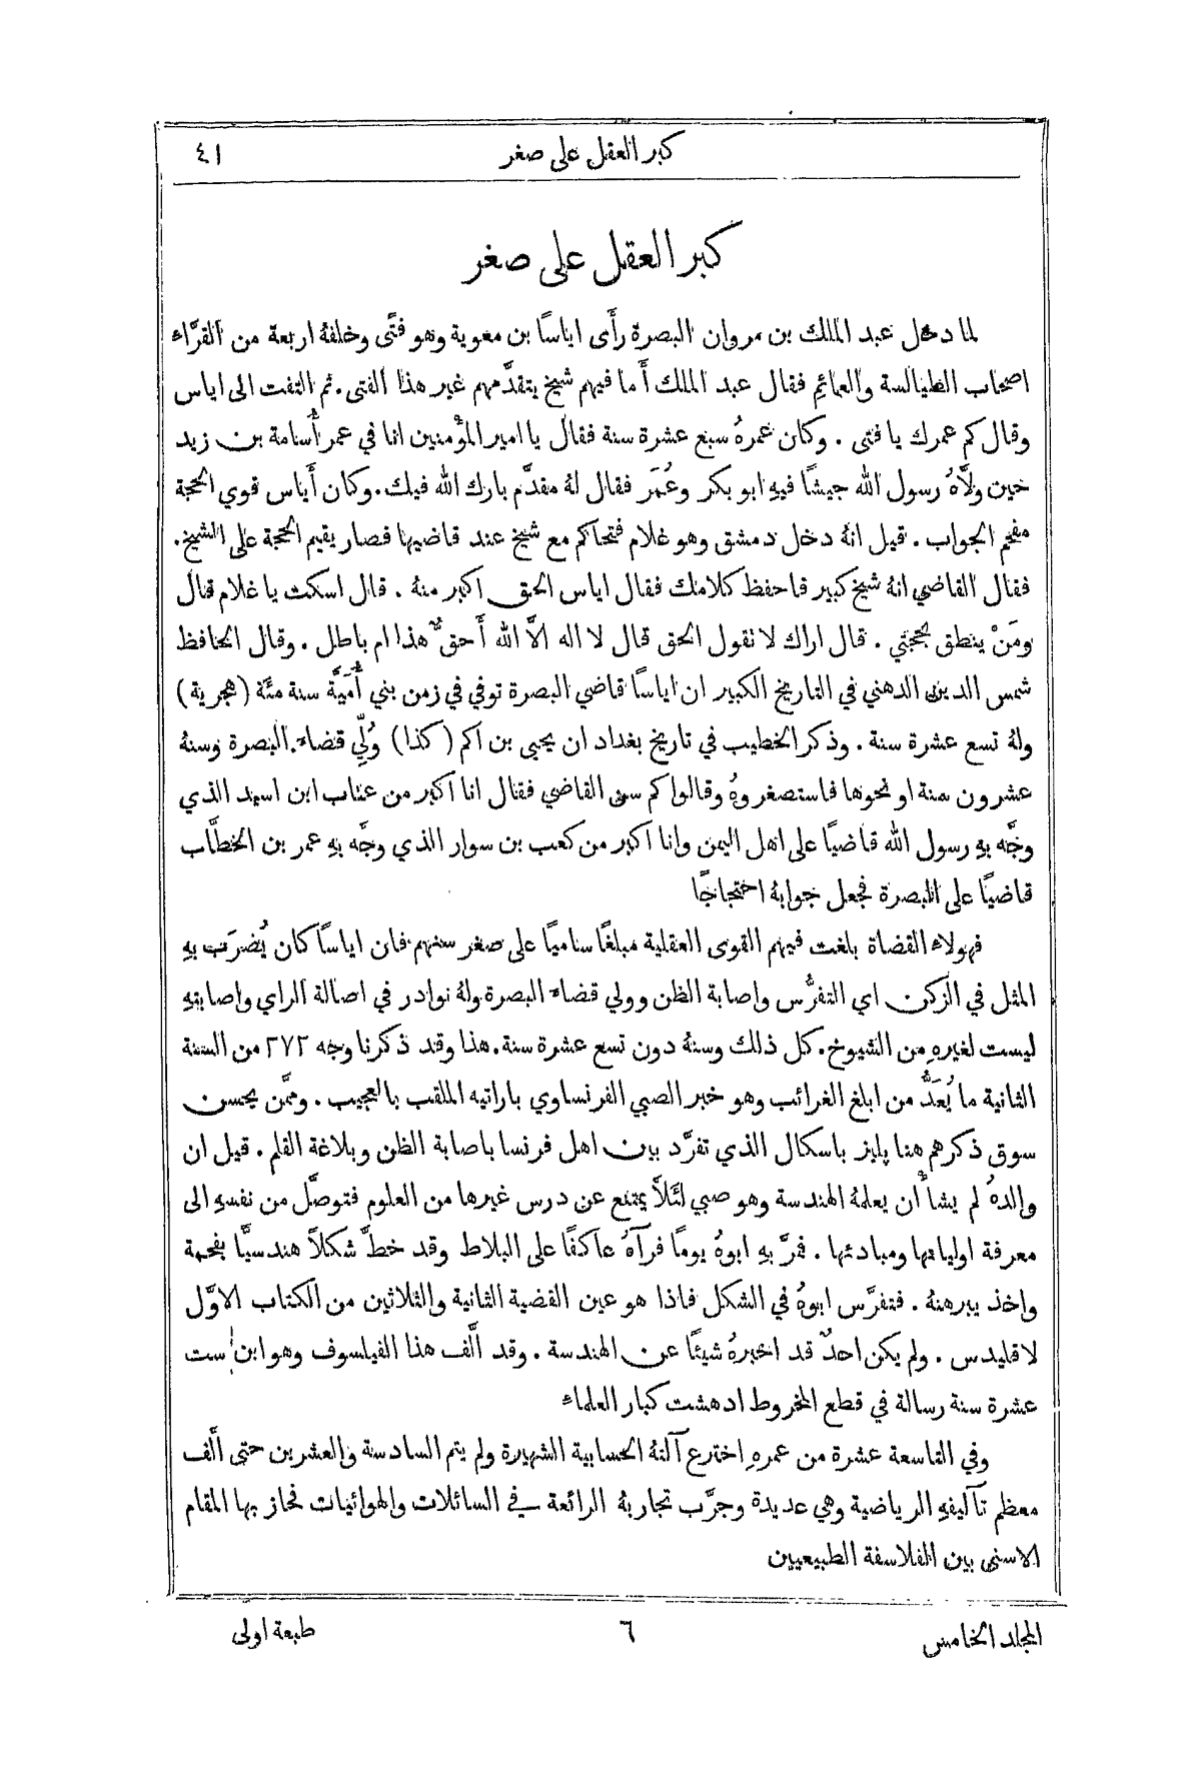 كبر العقل على صغر ٤١
كبر العقل على صغر
لما دخل عبد الملك بن مروان البصرة رأَى اياسًا بن معوية وهو فتًى وخلفهُ اربعة من القرَّاء
اصحاب الطيالسة والعمائم فقال عبد الملك أَما فيهم شيخ يتقدَّمهم غير هذا الفتى. ثم التفت الى اياس
وقال كم عمرك يا فتى . وكان عمرهُ سبع عشرة سنة فقال يا امير المؤْمنين انا في عمر أُسامة بن زيد
حين ولَّاهُ رسول الله جيشًا فيهِ ابو بكر وعُمَر فقال لهُ مقدَّم بارك الله فيك. وكان أَياس قوي الحجة
مفحم الجواب . قيل انهُ دخل دمشق وهو غلام فتحاكم مع شيخ عند قاضيها فصار يقيم الحجة على الشيخ.
فقال القاضي انهُ شيخ كبير فاحفظ كلامك فقال اياس الحق اكبر منهُ . قال اسكت يا غلام قال
ومَنْ ينطق بحجتي . قال اراك لا تقول الحق قال لا اله الَّا الله أَحقٌّ هذا ام باطل . وقال الحافظ
شمس الدين الدهني في التاريخ الكبير ان اياسًا قاضي البصرة توفي في زمن بني أُمَيَّة سنة مئة (هجرية)
ولهُ تسع عشرة سنة . وذكر الخطيب في تاريخ بغداد ان يحيى بن اكم (كذا) وُلِّي قضاء البصرة وسنهُ
عشرون سنة او نحوها فاستصغروهُ وقالوا كم سن القاضي فقال انا اكبر من عتاب ابن اسيد الذي
وجَّه بهِ رسول الله قاضيًا على اهل اليمن وانا اكبر من كعب بن سوار الذي وجَّه بهِ عمر بن الخطَّاب
قاضيًا على البصرة فجعل جوابهُ احتجاجًا
فهولاء القضاة بلغت فيهم القوى العقلية مبلغًا ساميًا على صغر سنهم فان اياسًا كان يُضرَب بهِ
المثل في الزكن اي التفرُّس واصابة الظن وولي قضاء البصرة ولهُ نوادر في اصالة الراي واصابتهِ
ليست لغيرهِ من الشيوخ. كل ذلك وسنهُ دون تسع عشرة سنة. هذا وقد ذكرنا وجه ٢٧٢ من السنة
الثانية ما يُعَدُّ من ابلغ الغرائب وهو خبر الصبي الفرنساوي باراتيه الملقب بالعجيب . وممَّن يحسن
سوق ذكرهم هنا پليز باسكال الذي تفرَّد بين اهل فرنسا باصابة الظن وبلاغة القلم . قيل ان
والدهُ لم يشأْ أن يعلمهُ الهندسة وهو صبي لئلَّا يمتنع عن درس غيرها من العلوم فتوصَّل من نفسهِ الى
معرفة اولياتها ومبادئها . فمرَّ بهِ ابوهُ يومًا فرآهُ عاكفًا على البلاط وقد خطَّ شكلاً هندسيًّا بفحمة
واخذ يبرهنهُ . فتفرَّس ابوهُ في الشكل فاذا هو عين القضية الثانية والثلاثين من الكتاب الاوَّل
لاقليدس . ولم يكن احدٌ قد اخبرهُ شيئًا عن الهندسة . وقد أَلَّف هذا الفيلسوف وهو ابن ست
عشرة سنة رسالة في قطع المخروط ادهشت كبار العلماء
وفي التاسعة عشرة من عمرهِ اخترع آلتهُ الحسابية الشهيرة ولم يتم السادسة والعشرين حتى أَلَّف
معظم تآليفهِ الرياضية وهي عديدة وجرَّب تجاربهُ الرائعة في السائلات والهوائيات فحاز بها المقام
الاسنى بين الفلاسفة الطبيعيين
المجلد الخامس ٦ طبعة اولى